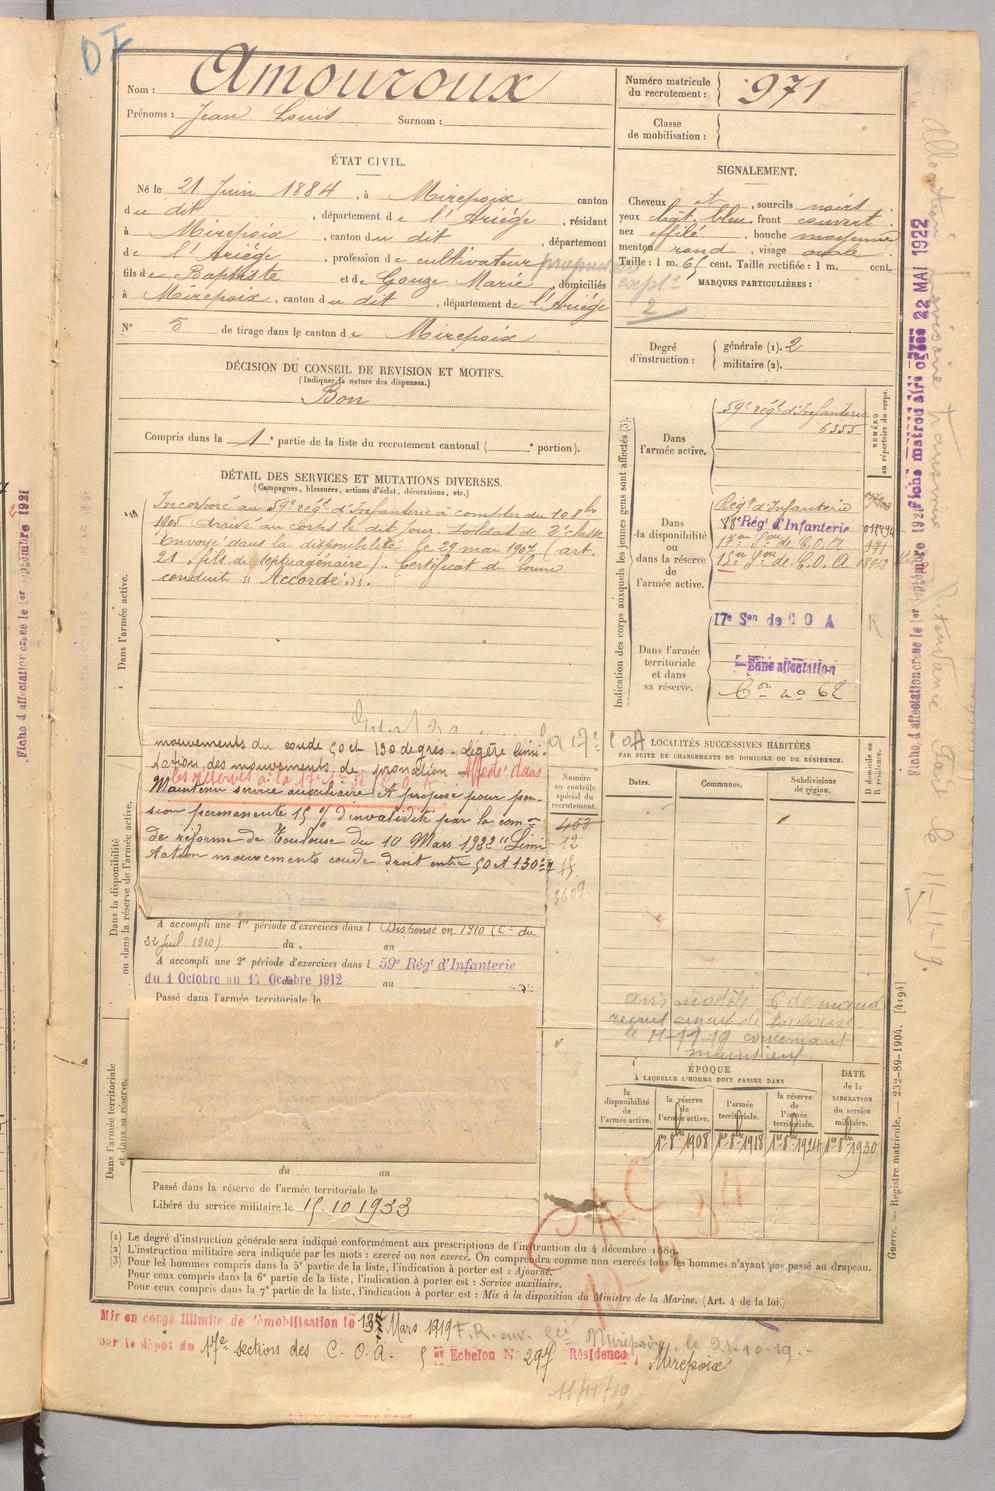 DI
Nom : Amouroux
Prénoms : Jean Louis Surnom :
Numéro matricule du recrutement : 971
Classe de mobilisation :
ÉTAT CIVIL.
Né le 21 Juin 1884, à Mirepoix canton
du dit, département de l'Ariège, résidant
à Mirepoix, canton du dit, département
de l'Ariège, profession de cultivateur
fils de Baptiste et de Gouze Marie domiciliés
à Mirepoix, canton du dit, département de l'Ariége
N° 5 de tirage dans le canton de Mirepoix
SIGNALEMENT.
Cheveux et, sourcils noirs
yeux chât. bleu front couvert
nez effilé, bouche moyenne
menton rond, visage ovale
Taille : 1 m. 65 cent. Taille rectifiée : 1 m. cent.
MARQUES PARTICULIÈRES :
expl.
2
Degré d'instruction : générale (1). 2
militaire (2).
DÉCISION DU CONSEIL DE REVISION ET MOTIFS.
(Indiquer la nature des dispenses.)
Bon
Compris dans la 1e partie de la liste du recrutement cantonal ( e portion).
DÉTAIL DES SERVICES ET MUTATIONS DIVERSES.
(Campagnes, blessures, actions d'éclat, décorations, etc.)
Dans l'armée active.
Incorporé au 59e régt d'Infanterie à compter du 10 8bre
1905 arrivé au corps le dit jour. Soldat de 2e classe
Envoyé dans la disponibilité le 29 mai 1907 (art.
21, fils de septuagénaire). Certificat de bonne
conduite "Accordé".
Dans la disponibilité ou dans la réserve de l'armée active.
mouvements du coude 50 et 130 degrés. Légère limi-
tation des mouvements de pronation. Affecté dans
les réserves à la 17e
Maintenu service auxiliaire et proposé pour pen-
sion permanente 15 % d'invalidité par la comon
de réforme de Toulouse du 10 Mars 1922 "Limi
tation mouvements coude droit entre 50 et 130°
A accompli une 1re période d'exercices dans l Dispensé en 1910 (Ce du
22 Juil. 1910) du au
A accompli une 2e période d'exercices dans l 59e Régt d'Infanterie
du 1 Octobre au 17 Octobre 1912 au
Passé dans l'armée territoriale le
Dans l'armée territoriale et dans sa réserve.
du au
Passé dans la réserve de l'armée territoriale le
Libéré du service militaire le 15.10 1933
Indication des corps auxquels les jeunes gens sont affectés (3).
NUMÉRO au répertoire du corps.
Dans l'armée active.
59e régt d'Infanterie
6355
Dans la disponibilité ou dans la réserve de l'armée active.
Régt d'Infanterie
Régt d'Infanterie
17e Son de C.O.A
15e Son de C.O.A
17e Son de C O A
Dans l'armée territoriale et dans sa réserve.
Sans affectation
Con no 62
à la 17e COA
Numéro au contrôle spécial du recrutement.
12
15
3609
LOCALITÉS SUCCESSIVES HABITÉES
PAR SUITE DE CHANGEMENTS DE DOMICILE OU DE RÉSIDENCE.
Dates. Communes. Subdivisions de région. D domicile ou R résidence.
avis modèle 6 demandé
recrutement de Toulouse
le 11-11-19 concernant
maintien
ÉPOQUE
À LAQUELLE L'HOMME DOIT PASSER DANS
la disponibilité de l'armée active. la réserve de l'armée active. l'armée territoriale. la réserve de l'armée territoriale. DATE de la LIBÉRATION du service militaire.
1er 8bre 1908 1er 8bre 1918 1er 8bre 1924 1er 8bre 1930
CAC
(1) Le degré d'instruction générale sera indiqué conformément aux prescriptions de l'instruction du 4 décembre 1889.
(2) L'instruction militaire sera indiquée par les mots : exercé ou non exercé. On comprendra comme non exercés tous les hommes n'ayant pas passé au drapeau.
(3) Pour les hommes compris dans la 5e partie de la liste, l'indication à porter est : Ajourné.
Pour ceux compris dans la 6e partie de la liste, l'indication à porter est : Service auxiliaire.
Pour ceux compris dans la 7e partie de la liste, l'indication à porter est : Mis à la disposition du Ministre de la Marine. (Art. 4 de la loi.)
Mis en congé illimité de démobilisation le 13 Mars 1919
par le dépôt du 17e sections des C.O.A. 5 er Echelon N° 297 Résidence, Mirepoix
Mirepoix, le 21-10-19.
11/11/19
Guerre. — Registre matricule. — 232-89-1904. [4194]
Fiche d'affectation créée le 1er septembre 1921
Fiche matrou aire créée 22 MAI 1922
Allocation provisoire transmise
11-11-19.
Fiche d'affectation créée le 1er septembre 1921